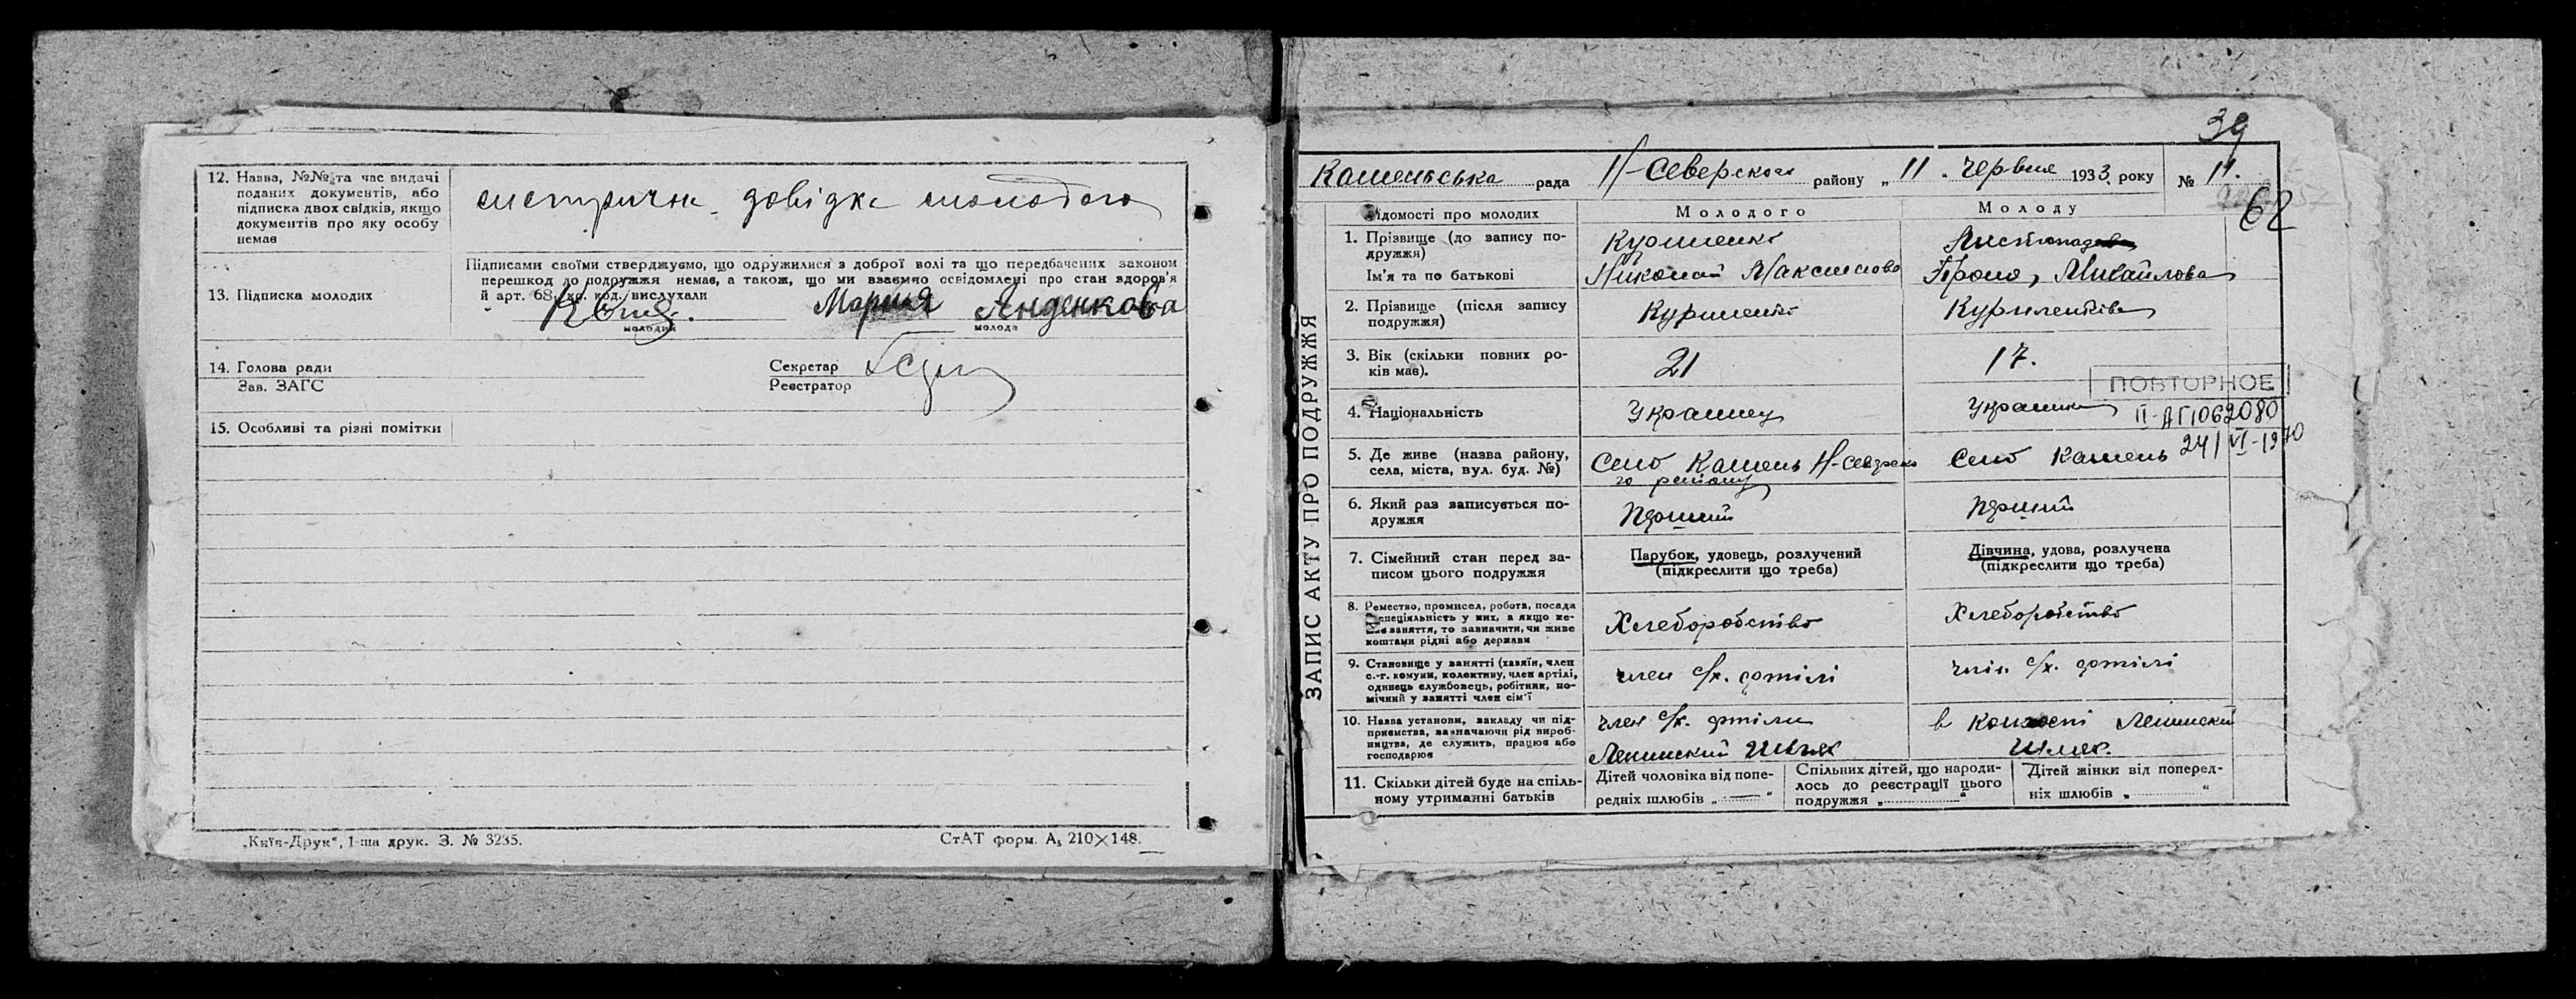 12. Назва, №№ та час видачі
поданих документів, або
підписка двох свідків, якщо
документів про яку особу
немає
довідка молодого
Підписами своїми стверджуємо, що одружилися з доброї волі та що передбачених законом
перешкод до подружжя немає, а також, що ми взаємно освідомлені про стан здоров'я
й арт. 68 кр. код. вислухали
13. Підписка молодих
Мария
молодий
молода
14. Голова ради
Зав. ЗАГС
Секретар
Реєстратор
15. Особливі та різні помітки
„Київ-Друк“, 1-ша друк. З. № 3235.
СтАТ форм. А₅ 210×148.
39
Каменська рада Н-Северского району „ 11 . червня 1933 року № 11.
62
ЗАПИС АКТУ ПРО ПОДРУЖЖЯ
Відомості про молодих
Молодого
Молоду
1. Прізвище (до запису подружжя)
Ім'я та по батькові
Николай Максимов
Михайлова
2. Прізвище (після запису
подружжя)
3. Вік (скільки повних ро-
ків має).
21
17.
ПОВТОРНОЕ
4. Національність
Украинец
Украинка
II-АП 062080
24/VI-1970
5. Де живе (назва району,
села, міста, вул. буд. №)
Село Камень Н-Северско
го району
Село Камень
6. Який раз записується по-
дружжя
Перший
Перший
7. Сімейний стан перед за-
писом цього подружжя
Парубок, удовець, розлучений
(підкреслити що треба)
Дівчина, удова, розлучена
(підкреслити що треба)
8. Ремество, промисел, робота, посада
спеціяльність у них, а якщо не-
має заняття, то зазначити, чи живе
коштами рідні або держави
Хлеборобство
Хлеборобство
9. Становище у занятті (хазяїн, член
с.-г. комуни, колективу, член артілі,
одинець службовець, робітник, по-
мічний у занятті член сім'ї
член с/х. артілі
член с/х. артілі
10. Назва установи, закладу чи під-
приємства, зазначаючи рід вироб-
ництва, де служить, працює або
господарює
член с/х. артіли
Ленинский Шлях
в колгоспі Ленинский
Шлях.
11. Скільки дітей буде на спіль-
ному утриманні батьків
Дітей чоловіка від попе-
редніх шлюбів „ — “
Спільних дітей, що народи-
лось до реєстрації цього
подружжя „ “
Дітей жінки від поперед-
ніх шлюбів „ “